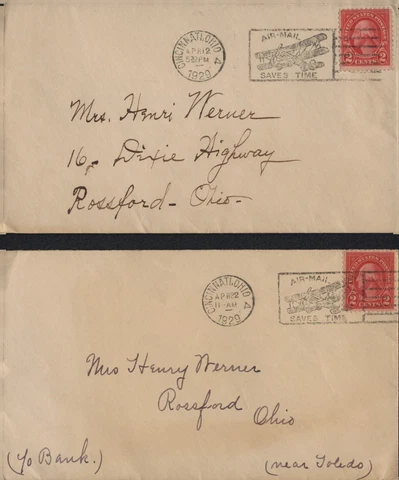 CINCINNATI, OHIO A
APR 12
5:30 PM
1929
AIR-MAIL
SAVES TIME
2 CENTS 2
Mrs. Henri Werner
16, Dixie Highway
Rossford - Ohio -
CINCINNATI, OHIO A
APR 22
11-AM
1929
AIR-MAIL
SAVES TIME
2 CENTS 2
Mrs Henry Werner
Rossford
Ohio
(c/o Bank.)
(near Toledo)